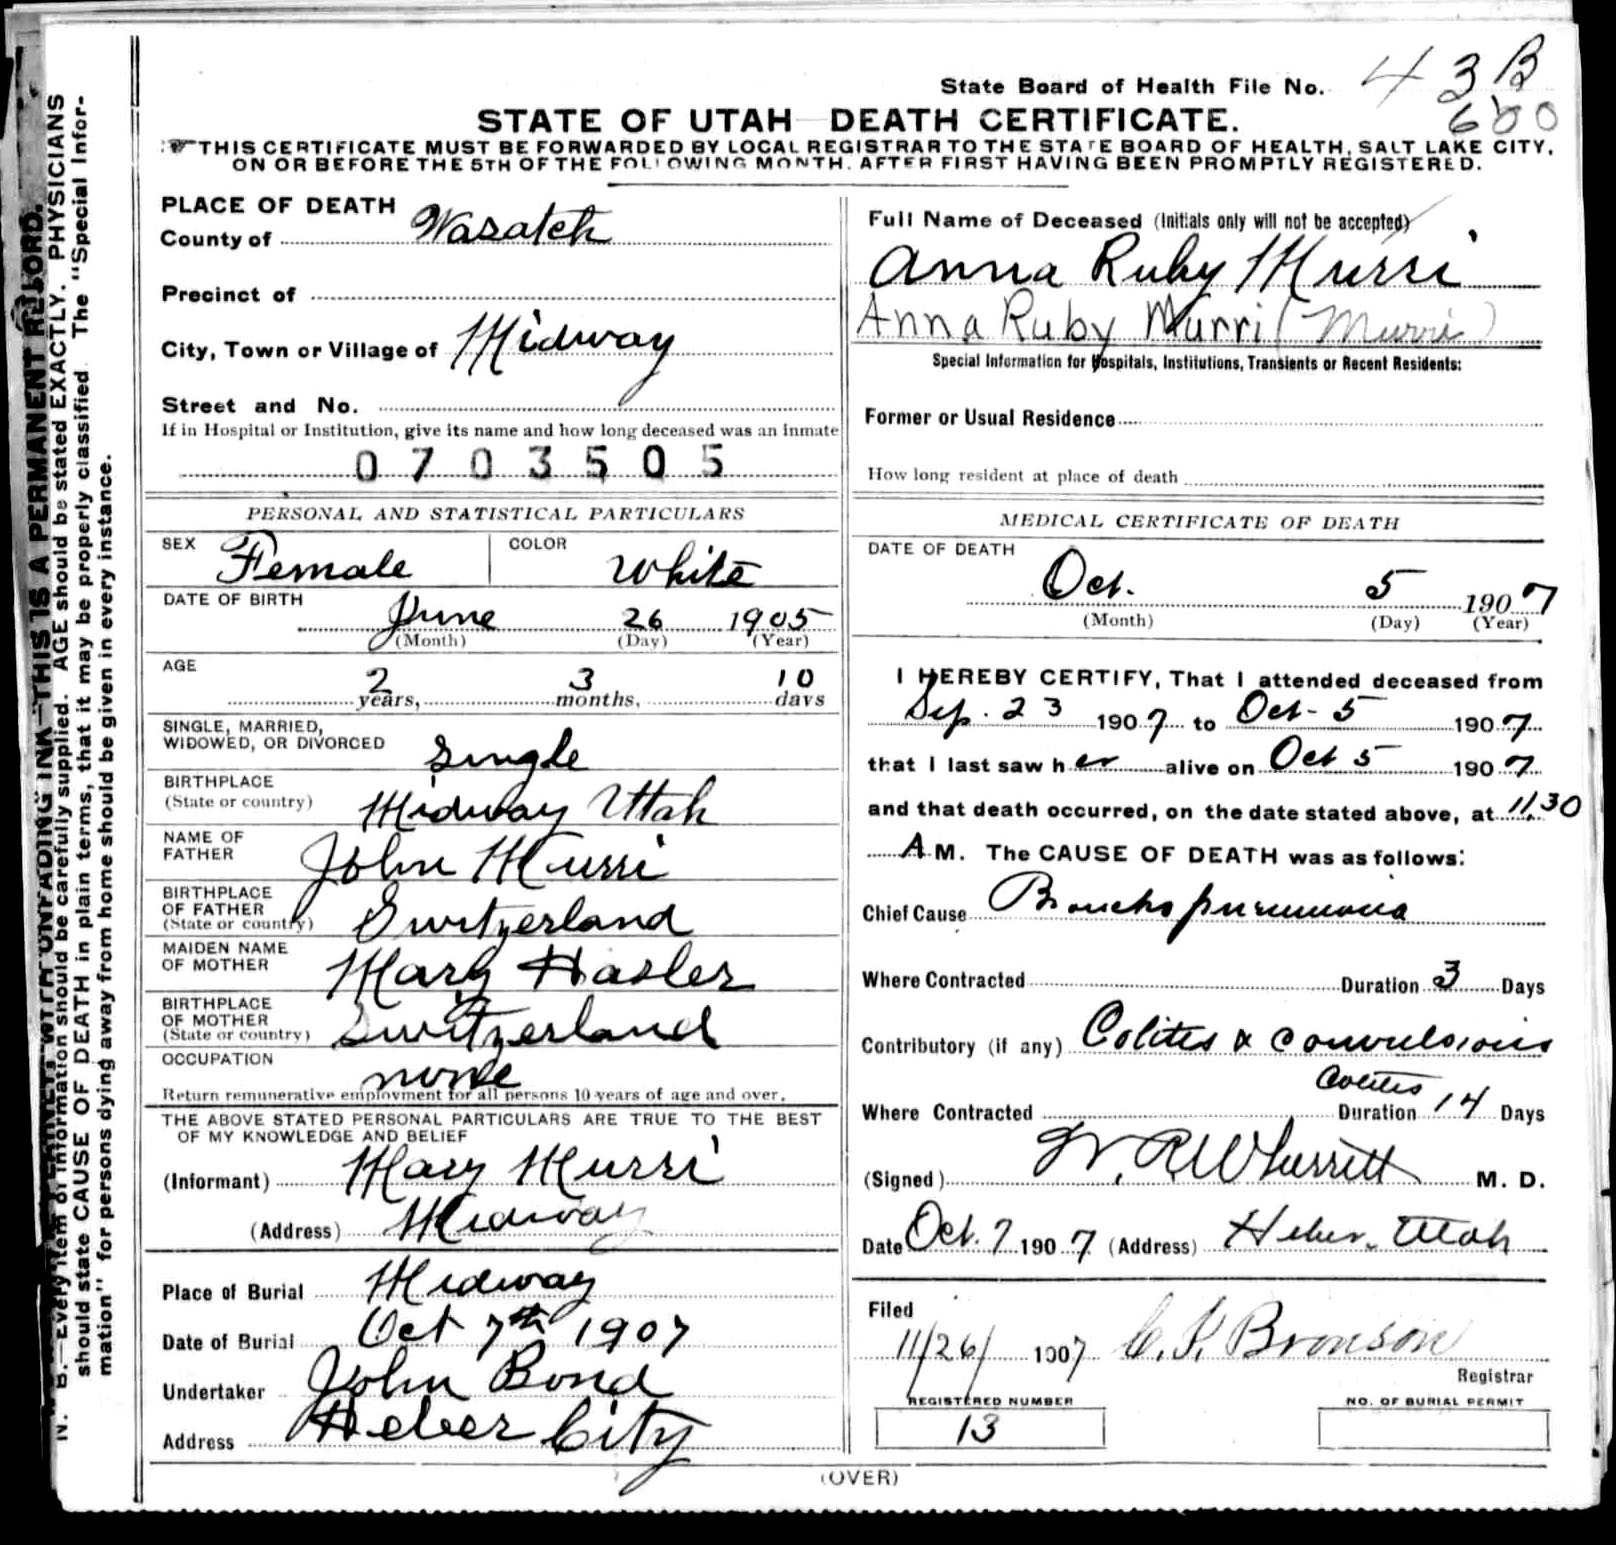 State Board of Health File No. 43 B
600
STATE OF UTAH DEATH CERTIFICATE.
THIS CERTIFICATE MUST BE FORWARDED BY LOCAL REGISTRAR TO THE STATE BOARD OF HEALTH, SALT LAKE CITY,
ON OR BEFORE THE 5TH OF THE FOLLOWING MONTH. AFTER FIRST HAVING BEEN PROMPTLY REGISTERED.
PLACE OF DEATH
County of Wasatch
Precinct of
City, Town or Village of Midway
Street and No.
If in Hospital or Institution, give its name and how long deceased was an inmate
0703505
PERSONAL AND STATISTICAL PARTICULARS
SEX Female COLOR White
DATE OF BIRTH June 26 1905
(Month) (Day) (Year)
AGE 2 years, 3 months, 10 days
SINGLE, MARRIED,
WIDOWED, OR DIVORCED Single
BIRTHPLACE
(State or country) Midway Utah
NAME OF
FATHER John Murri
BIRTHPLACE
OF FATHER
(State or country) Switzerland
MAIDEN NAME
OF MOTHER Mary Hasler
BIRTHPLACE
OF MOTHER
(State or country) Switzerland
OCCUPATION none
Return remunerative employment for all persons 10 years of age and over.
THE ABOVE STATED PERSONAL PARTICULARS ARE TRUE TO THE BEST
OF MY KNOWLEDGE AND BELIEF
(Informant) Mary Murri
(Address) Midway
Place of Burial Midway
Date of Burial Oct 7th 1907
Undertaker John Bond
Address Heber City
Full Name of Deceased (Initials only will not be accepted)
Anna Ruby Murri
Anna Ruby Murri (Murri)
Special Information for Hospitals, Institutions, Transients or Recent Residents:
Former or Usual Residence
How long resident at place of death
MEDICAL CERTIFICATE OF DEATH
DATE OF DEATH
Oct. 5 1907
(Month) (Day) (Year)
I HEREBY CERTIFY, That I attended deceased from
Sep. 23 1907 to Oct- 5 1907
that I last saw her alive on Oct 5 1907
and that death occurred, on the date stated above, at 11.30
A M. The CAUSE OF DEATH was as follows:
Chief Cause Broncho pneumonia
Where Contracted Duration 3 Days
Contributory (if any) Colites & convulsions
Colites
Where Contracted Duration 14 Days
(Signed) M. D.
Date Oct. 7 1907 (Address) Heber, Utah
Filed
11/26/ 1907 Bronson
Registrar
REGISTERED NUMBER
13
NO. OF BURIAL PERMIT
(OVER)
should be carefully supplied. AGE should be stated EXACTLY. PHYSICIANS
should state CAUSE OF DEATH in plain terms, that it may be properly classified. The "Special Infor-
mation" for persons dying away from home should be given in every instance.